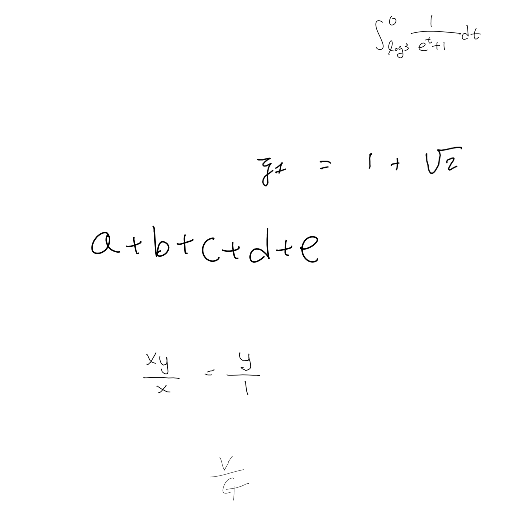 \int_{\log 3}^{0} \frac{1}{e^t+1} dt
z_1 = 1 + \sqrt{2}
a+b+c+d+e
\frac{xy}{x} = \frac{y}{1}
\frac{V}{G}